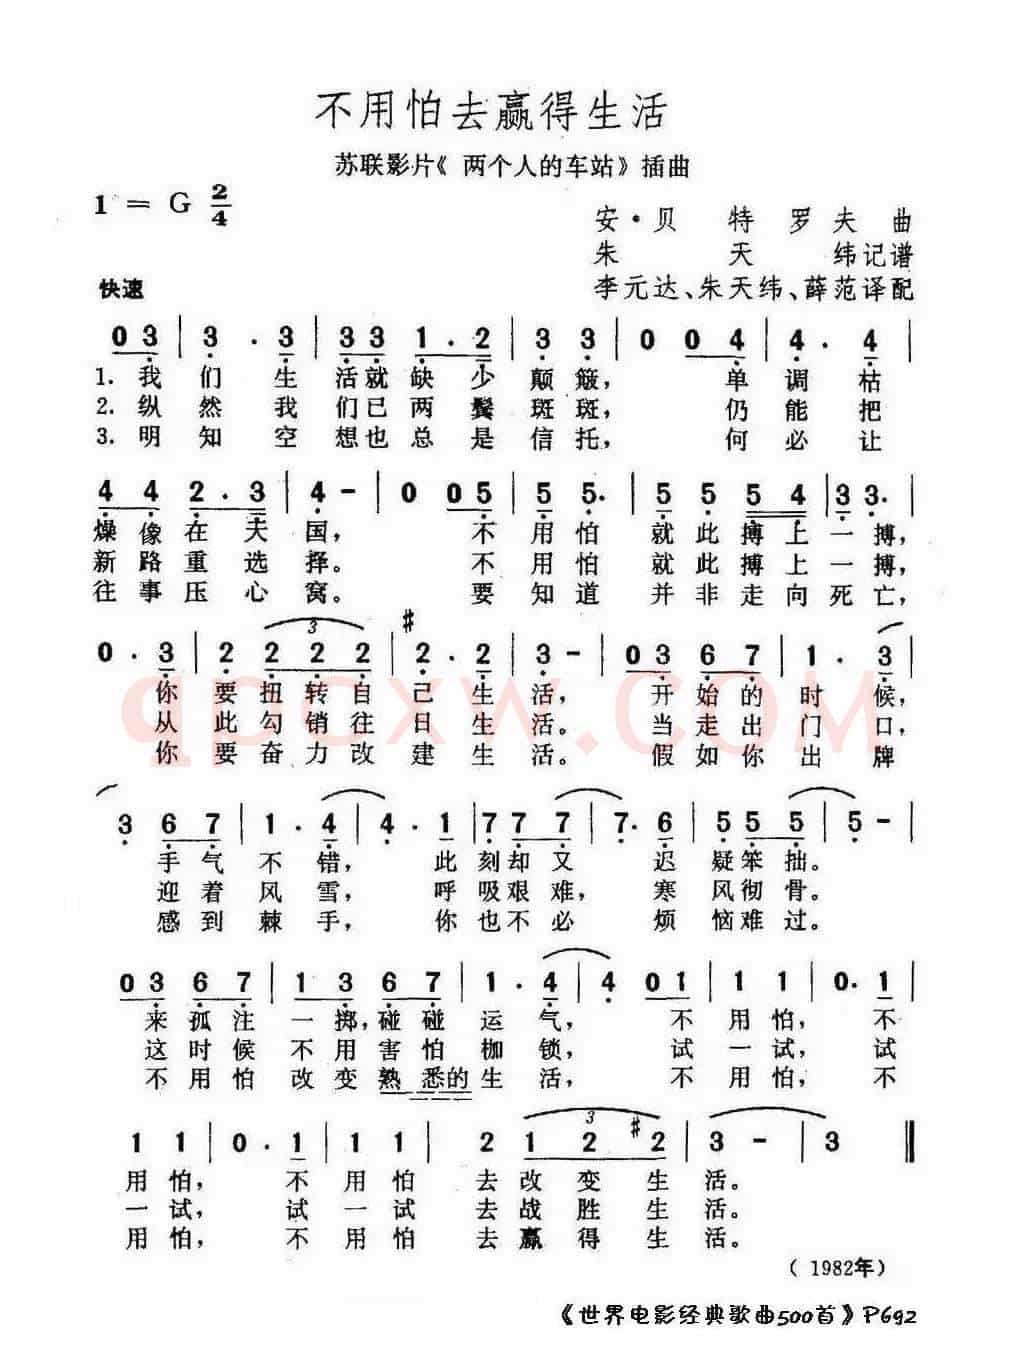 不用怕去赢得生活
苏联影片《两个人的车站》插曲
1 = G 2/4
安·贝特罗夫曲
朱天纬记谱
快速
李元达、朱天纬、薛范译配
0 3 | 3 . 3 | 3 3 1 . 2 | 3 3 | 0 0 4 | 4 . 4 |
1. 我们生活就缺少颠簸, 单调枯
2. 纵然我们已两鬓斑斑, 仍能把
3. 明知空想也总是信托, 何必让
4 4 2 . 3 | 4 - | 0 0 5 | 5 5 . | 5 5 5 4 | 3 3 . |
燥像在天国, 不用怕就此搏上一搏,
新路重选择。 不用怕就此搏上一搏,
往事压心窝。 要知道并非走向死亡,
0 . 3 | 2 2 2 2 | #2 . 2 | 3 - | 0 3 6 7 | 1 . 3 |
3
你要扭转自己生活, 开始的时候,
从此勾销往日生活。 当走出门口,
你要奋力改建生活。 假如你出牌
3 6 7 | 1 . 4 | 4 . 1 | 7 7 7 | 7 . 6 | 5 5 5 | 5 - |
手气不错, 此刻却又迟疑笨拙。
迎着风雪, 呼吸艰难, 寒风彻骨。
感到棘手, 你也不必烦恼难过。
0 3 6 7 | 1 3 6 7 | 1 . 4 | 4 0 1 | 1 1 | 0 . 1 |
来孤注一掷, 碰碰运气, 不用怕, 不
这时候不用害怕枷锁, 试一试, 试
不用怕改变熟悉的生活, 不用怕, 不
1 1 | 0 . 1 | 1 1 | 2 1 2 #2 | 3 - | 3 ‖
3
用怕, 不用怕去改变生活。
一试, 试一试去战胜生活。
用怕, 不用怕去赢得生活。
(1982年)
《世界电影经典歌曲500首》P692
qpcxw.com